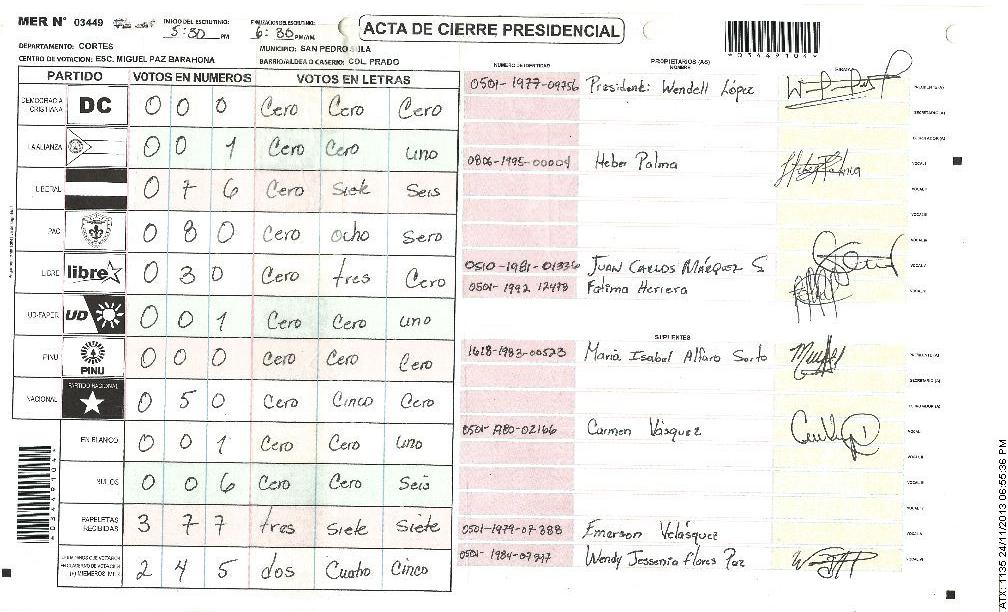 MER N° 03449
INICIO DEL ESCRUTINIO: 5:50 PM
FINALIZACION DEL ESCRUTINIO: 6:30 PM/AM.
ACTA DE CIERRE PRESIDENCIAL
DEPARTAMENTO: CORTES
MUNICIPIO: SAN PEDRO SULA
CENTRO DE VOTACION: ESC. MIGUEL PAZ BARAHONA
BARRIO/ALDEA O CASERIO: COL. PRADO
PARTIDO VOTOS EN NUMEROS VOTOS EN LETRAS
DEMOCRACIA CRISTIANA DC 0 0 0 Cero Cero Cero
LA ALIANZA 0 0 1 Cero Cero uno
LIBERAL 0 7 6 Cero Siete Seis
PAC 0 8 0 Cero ocho Sero
LIBRE libre 0 3 0 Cero tres Cero
UD-FAPER UD 0 0 1 Cero Cero uno
PINU PINU 0 0 0 Cero Cero Cero
NACIONAL PARTIDO NACIONAL 0 5 0 Cero Cinco Cero
EN BLANCO 0 0 1 Cero Cero uno
NULOS 0 0 6 Cero Cero Seis
PAPELETAS RECIBIDAS 3 7 7 tres Siete Siete
2 4 5 dos Cuatro Cinco
NUMERO DE IDENTIDAD
PROPIETARIOS (AS)
NOMBRE
FIRMA
0501-1977-09756 Presidente: Wendell López
PRESIDENTE (A)
SECRETARIO (A)
ESCRUTADOR (A)
0806-1995-00004 Heber Palma
VOCAL I
VOCAL II
VOCAL III
0510-1981-01336 JUAN CARLOS MÁRQUEZ S
0501-1992 12478 Fatima Herrera
SUPLENTES
1618-1983-00523 Maria Isabel Alfaro Sorto
PRESIDENTE (A)
SECRETARIO (A)
ESCRUTADOR (A)
Carmen Vásquez
0501-1979-07388 Emerson Velásquez
Wendy Jessenia flores Paz
*03449104*
*03449104*
ATX: 1135 24/11/2013 06:55:36 PM